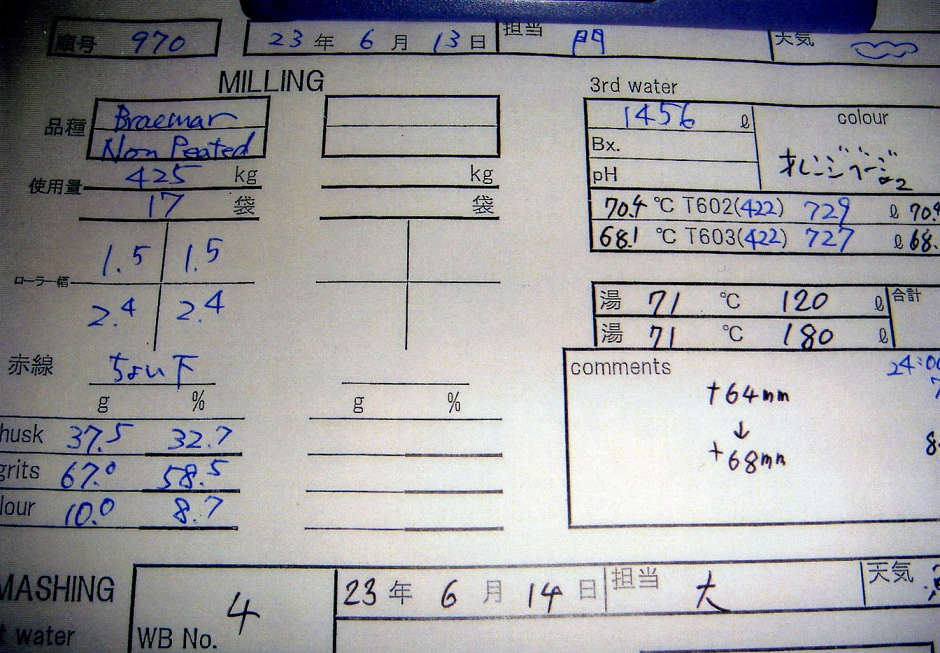 順号 970 23 年 6 月 13 日 担当 門 天気
MILLING
品種 Braemar
Non Peated
使用量 425 kg kg
17 袋 袋
ローラー幅 1.5 1.5
2.4 2.4
赤線 ちょい下
g % g %
husk 37.5 32.7
grits 67.0 58.5
lour 10.0 8.7
3rd water
1456 ℓ colour
Bx.
pH
70.4 ℃ T602(422) 729 ℓ 70.4
68.1 ℃ T603(422) 727 ℓ 68.
湯 71 ℃ 120 ℓ 合計
湯 71 ℃ 180 ℓ
comments 24:00
+64mm
↓
+68mm
MASHING 4 23 年 6 月 14 日 担当 大 天気
t water WB No.